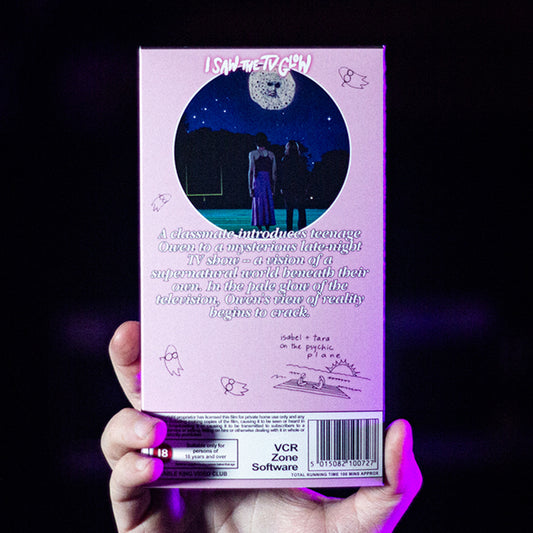 I SAW THE TV GLOW
A classmate introduces teenage
Owen to a mysterious late-night
TV show – a vision of a
supernatural world beneath their
own. In the pale glow of the
television, Owen's view of reality
begins to crack.
isabel + tara
on the psychic
plane
proprietor has licensed this film for private home use only and any
making copies of the film, causing it to be seen or heard in
causing it to be transmitted to subscribers to a
or otherwise dealing with it in whole or
Suitable only for
persons of
18 years and over
18
VCR
Zone
Software
5 015082 100727
VIDEO CLUB
TOTAL RUNNING TIME 100 MINS APPROX